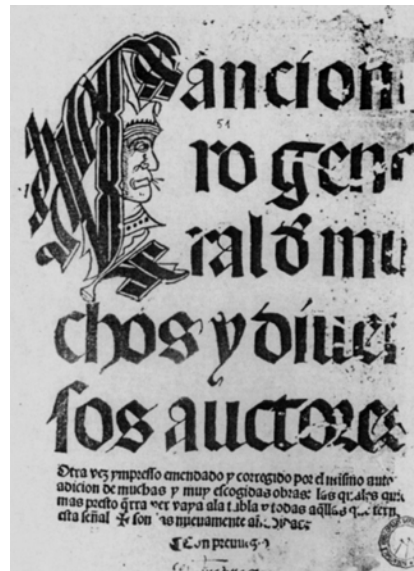 Cancion
51
ro gene
ral d̄ mu
chos y diuer
sos auctores
Otra vez ympresso emendado y corregido por el mismo auto
adicion de muchas y muy escogidas obras: las quales quie
mas presto q̄rra ver vaya ala tabla y todas aq̄llas que tern
esta señal ✠ son las nueuamente
Con preuile